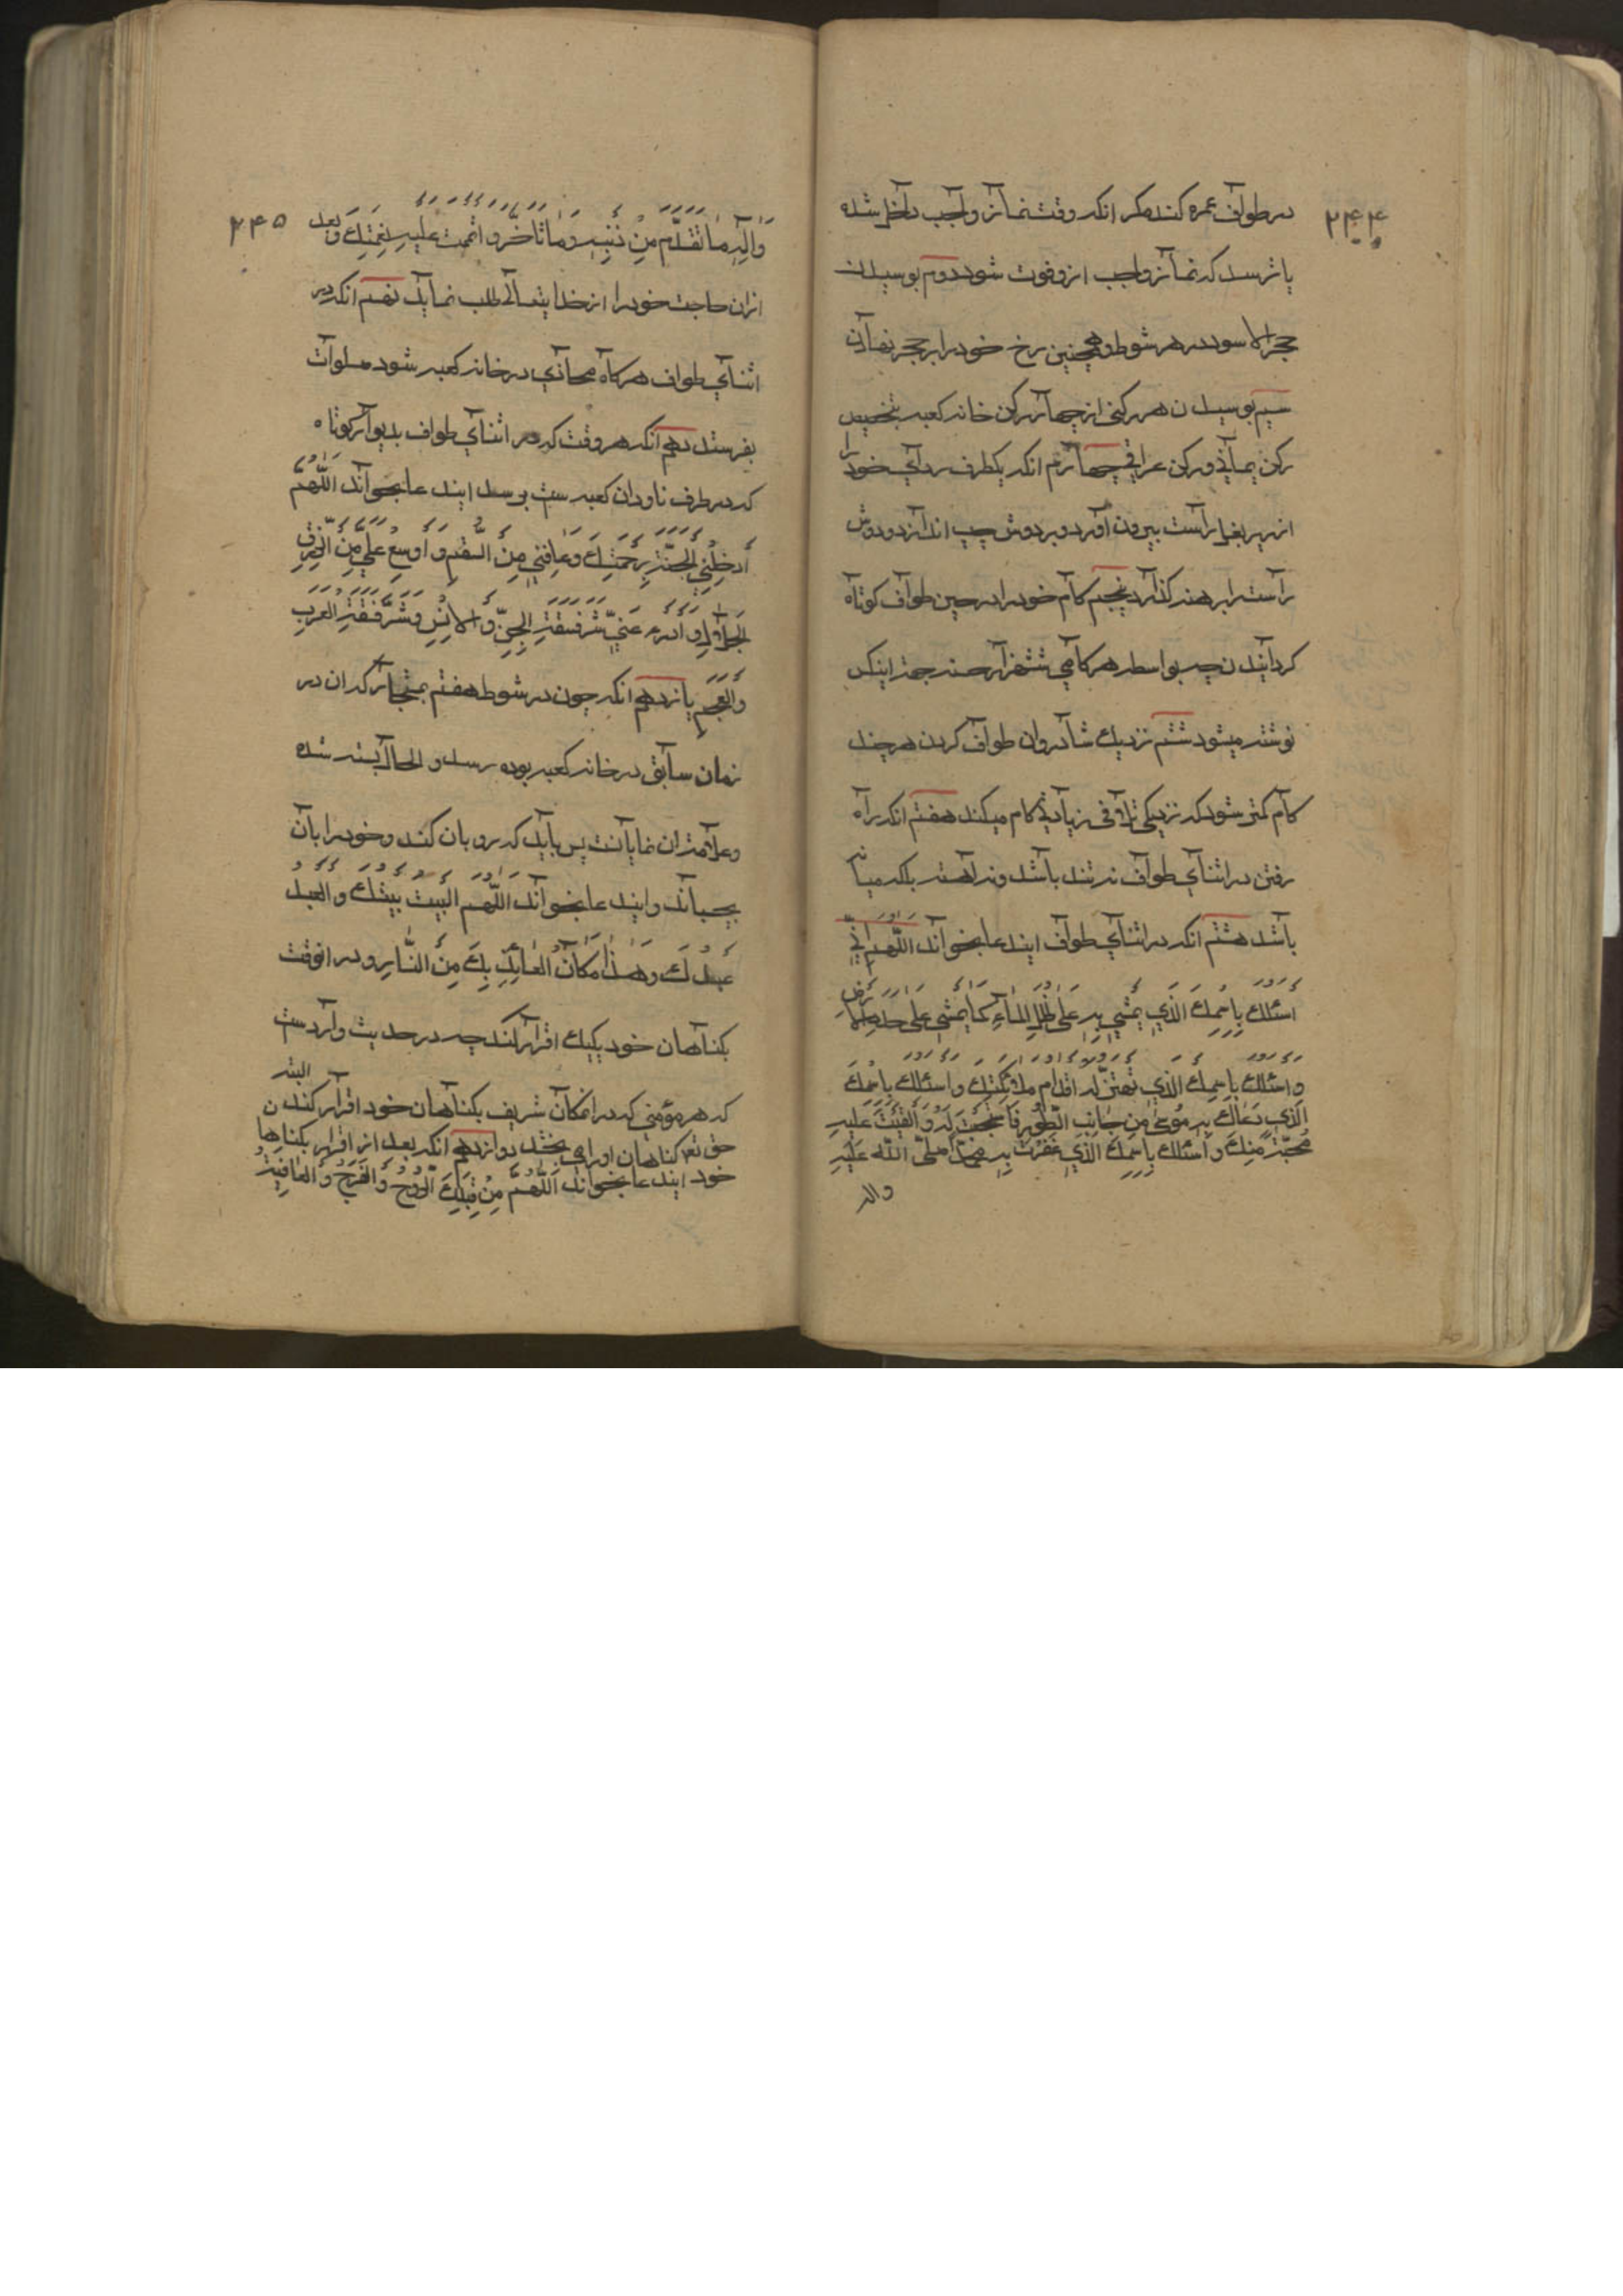 ۲۴۴
در طواف عمره کند مکر انکه وقت نماز واجب داخل شده
یا ترسد که نماز واجب ازو فوت شود دویم بوسیدن
حجر الاسود در هر شوط و همچنین رخ خود را بر حجر نهادن
سیم بوسیدن هر رکنی از چهار رکن خانه کعبه بتخصیص
رکن یمانی و رکن عراقی چهارم انکه یکطرف ردای خود را
از زیر بغل راست بیرون آورد و بر دوش چپ اندازد و دوش
راست را برهنه کذارد پنجم کام خود را در حین طواف کوتاه
کردانیدن چه بواسطه هر کامی ششهزار حسنه جهة اینکس
نوشته میشود ششم نزدیک شادروان طواف کردن هر چند
کام کمتر شود که نزدیکی تلافی زیادتی کام میکند هفتم انکه راه
رفتن در اثنای طواف نه تند باشد و نه آهسته بلکه میانه
باشد هشتم انکه در اثنای طواف ایندعا بخواند اللّهم انّی
اسئلک بِاسْمِکَ الَّذی یُمْشی بِهِ عَلی ظُلَلِ الْماءِ کَما یُمْشی عَلی جدد الارض
وَ اَسْئَلُکَ بِاسْمِکَ الَّذی تهتزّ له اقدام ملائکتِکَ و اسئلک بِاسْمِکَ
الَّذی دَعاکَ بِهِ مُوسی مِن جانِبِ الطُّورِ فَاسْتَجَبْتَ لَهُ وَ اَلْقَیْتَ عَلیهِ
مُحبّةً مِنکَ وَ اَسْئلُکَ بِاسْمِکَ الَّذی غَفَرْتَ بِهِ لِمُحَمَّدٍ صلّی اللّه عَلَیهِ
واله
۲۴۵
وَ الِهِ ما تَقَدَّم مِن ذَنبِهِ وَ ما تاَخَّر و اتممت عَلَیهِ نِعْمَتِکَ و بعد
ازان حاجت خود را از خدایتعالی طلب نماید نهم انکه در
اثنای طواف هرکاه محاذی در خانه کعبه شود صلوات
بفرستد دهم انکه هر وقت که در اثنای طواف بدیوار کوتاه
که در طرف ناودان کعبه ست برسد ایندعا بخواند اَللّهُمَّ
اَدخِلْنِی الجَنَّةَ بِرَحْمَتِکَ وَ عافِنی مِنَ السُّقمِ وَ اَوسِعْ عَلَیَّ مِنَ الرِّزقِ
الحَلالِ وَ ادْرَء عَنّی شَرَّ فَسَقَةِ الْجِنِّ وَ الاِنسِ وَ شَرَّ فَسَقَةِ العَرَبِ
وَ العَجَمِ یازدهم انکه چون در شوط هفتم بمستجار که ان در
زمان سابق در خانه کعبه بوده رسد و الحال بسته شده
و علامت ان نمایانست پس باید که رو بان کند و خود را بان
بچسباند و ایندعا بخواند اَللّهم البَیت بَیتُکَ و العَبدُ
عَبدُکَ وَ هٰذا مَکانُ العائِذِ بِکَ مِنَ النّارِ و در انوقت
بکناهان خود یکیک اقرار کند چه در حدیث واردست
که هر مؤمنی که در انمکان شریف بکناهان خود اقرار کند البته
حق تع کناهان اورا می بخشد دوازدهم انکه بعد از اقرار بکناهای
خود ایندعا بخواند اَللّهُمَّ مِن قِبَلِکَ الرَّوْحُ وَ الفَرَجُ وَ العافِیَةُ